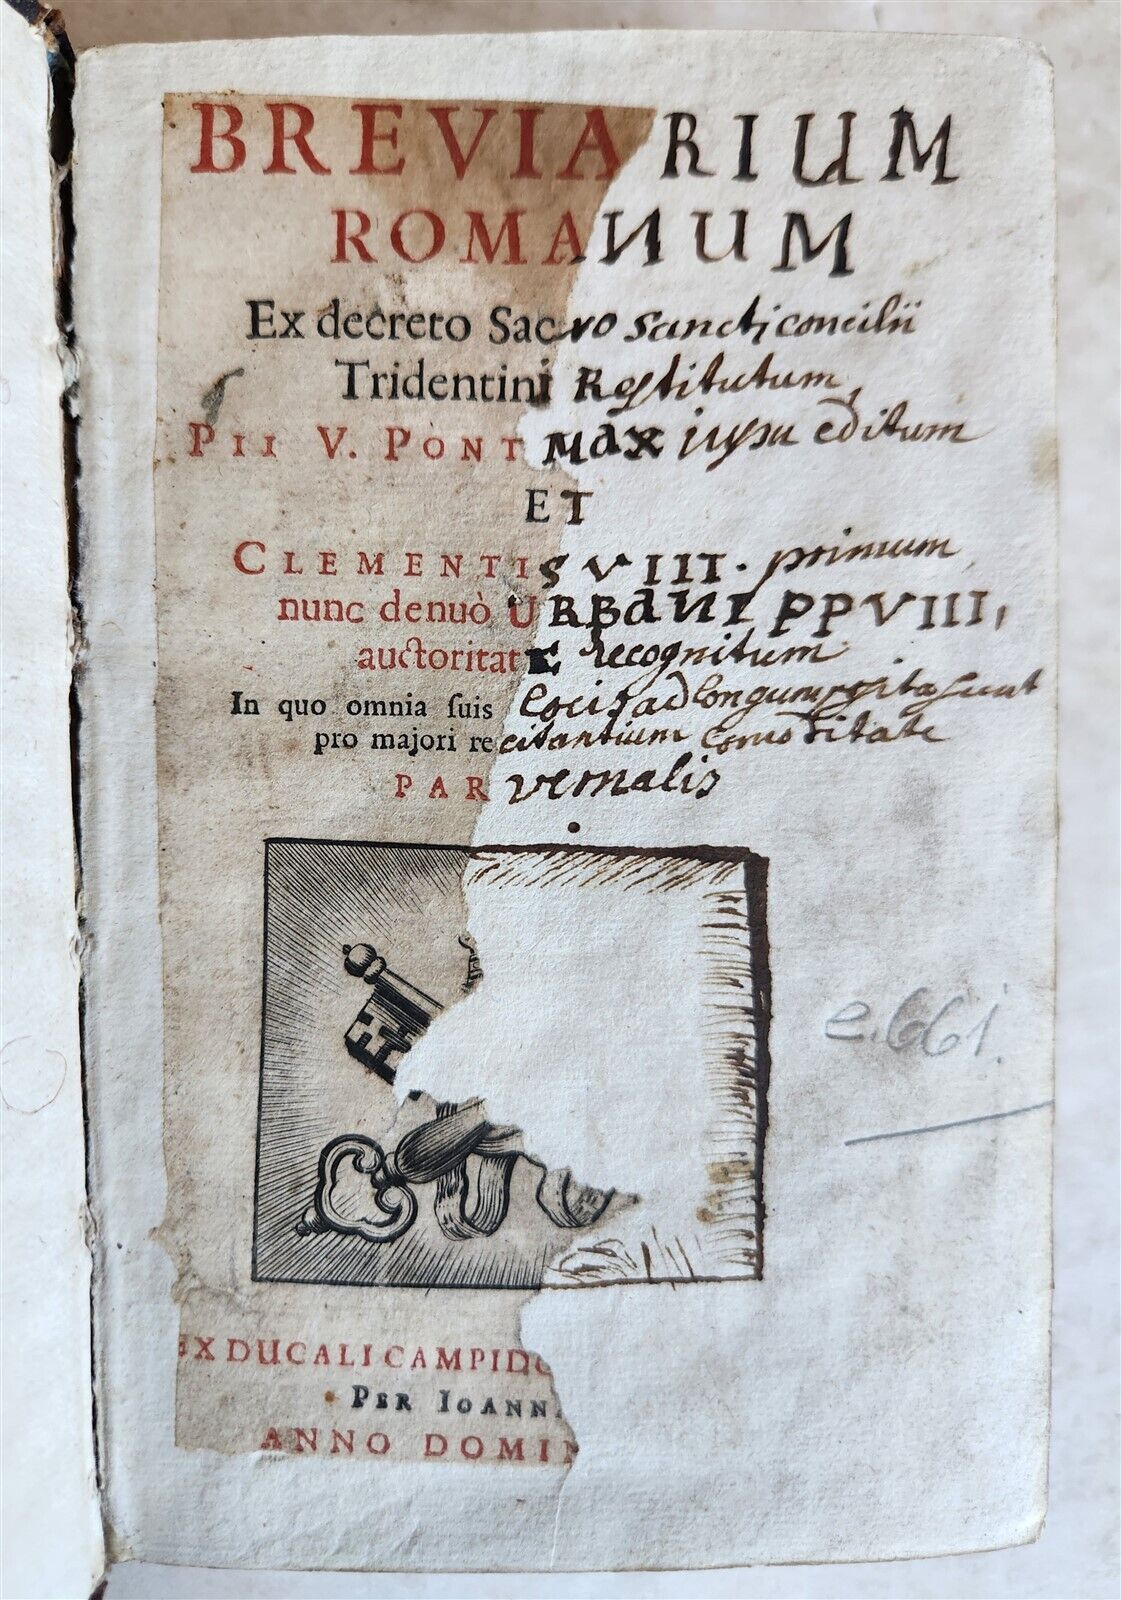 BREVIARIUM
ROMANUM
Ex decreto Sacro sancti concilii
Tridentini Restitutum,
PII V. PONT MAX jussu editum
ET
CLEMENTIS VIII. primum
nunc denuò URBANI PP VIII,
auctoritatE recognitum
In quo omnia suis Locis ad longum posita sunt
pro majori recitantium comoditate
PAR vernalis
e.661.
EX DUCALI CAMPIDO
PER IOANN
ANNO DOMIN